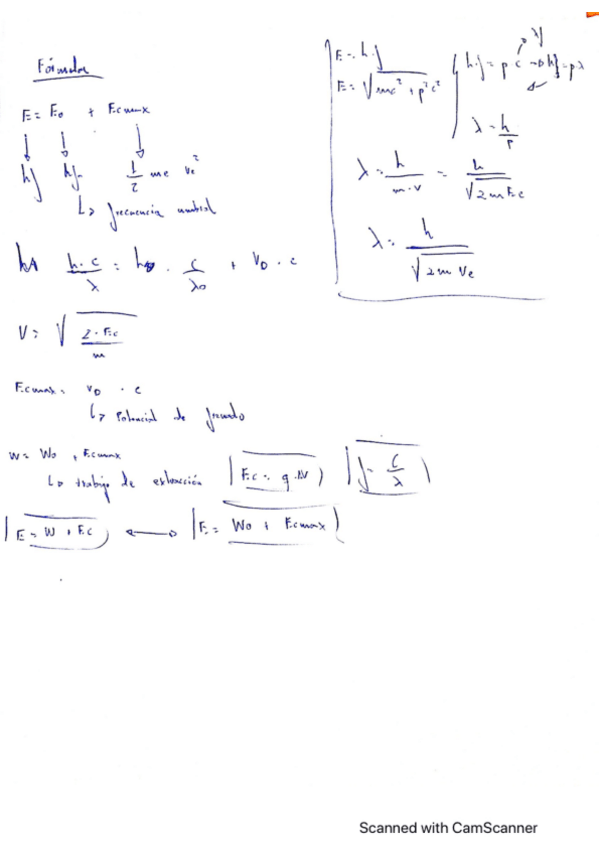 Fórmulas
E = E₀ + Ecmax
hf hf₀ 1/2 me ve²
↳ frecuencia umbral
h·c/λ = h · c/λ₀ + V₀ · e
V = √(2·Ec/m)
Ecmax = V₀ · e
↳ Potencial de frenado
W = W₀ + Ecmax
↳ trabajo de extracción Ec = q·ΔV f = c/λ
E = W + Ec ⟷ E = W₀ + Ecmax
E = h·f
E = √(mc² + p²c²)
h·f = p c → λf
hf = pλ
λ = h/p
λ = h/(m·v) = h/√(2mEc)
λ = h/√(2m Ve)
Scanned with CamScanner